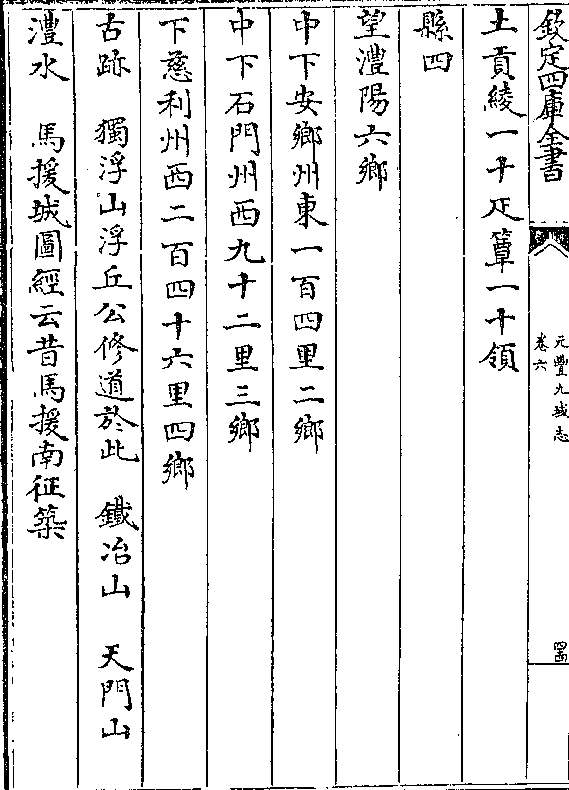 欽定四庫全書
元豐九域志
卷六
土貢綾一十疋簟一十領
縣四
望澧陽六鄉
中下安鄉州東一百四里二鄉
中下石門州西九十二里三鄉
下慈利州西二百四十六里四鄉
古跡　獨浮山浮丘公修道於此　鐵冶山　天門山
澧水　馬援城圖經云昔馬援南征築